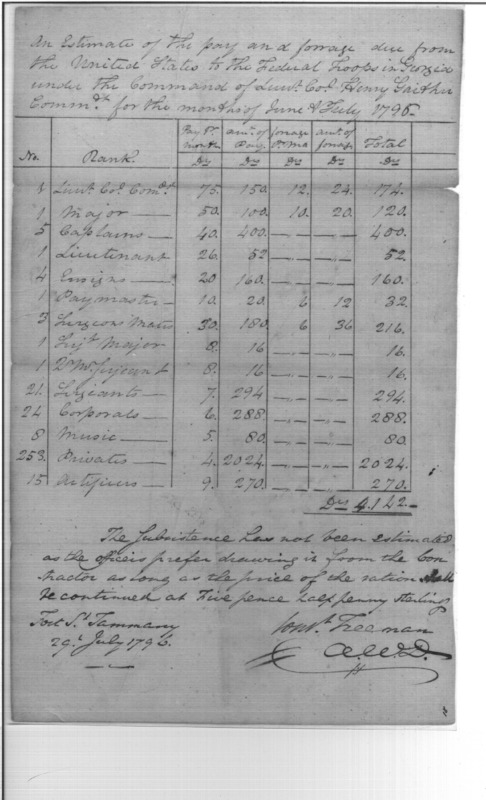 An Estimate of the pay and forrage due from
the United States to the Federal Troops in Georgia
under the Command of Lieut. Col. Henry Gaither
Commdt. for the months of June & July 1796.
No. Rank. Pay Pr. month Ds amt. of Pay. Ds forage Pr. Mo Ds amt. of forage Ds Total Ds
1 Lieut. Col. Comdt. 75. 150. 12. 24. 174.
1 Major 50. 100. 10. 20. 120.
5 Captains 40. 400. 400.
1 Lieutenant 26. 52 52.
4 Ensigns 20 160. 160.
1 Paymaster 10. 20. 6 12 32.
3 Surgeons Mates 30. 180. 6 36 216.
1 Serjt. Major 8. 16 16.
1 Qr. Mr. Serjeant 8. 16 16.
21. Serjeants 7. 294 294.
24 Corporals 6. 288 288.
8 Music 5. 80. 80.
253. Privates 4. 2024. 2024.
15 Artificers 9. 270. 270.
Ds 4.142.
The Subsistence has not been estimated
as the officers prefer drawing it from the Con
tractor as long as the price of the ration shall
be continued at five pence half penny sterling
Fort St. Tammany
29. July 1796.
Const. Freeman
A.W.D.